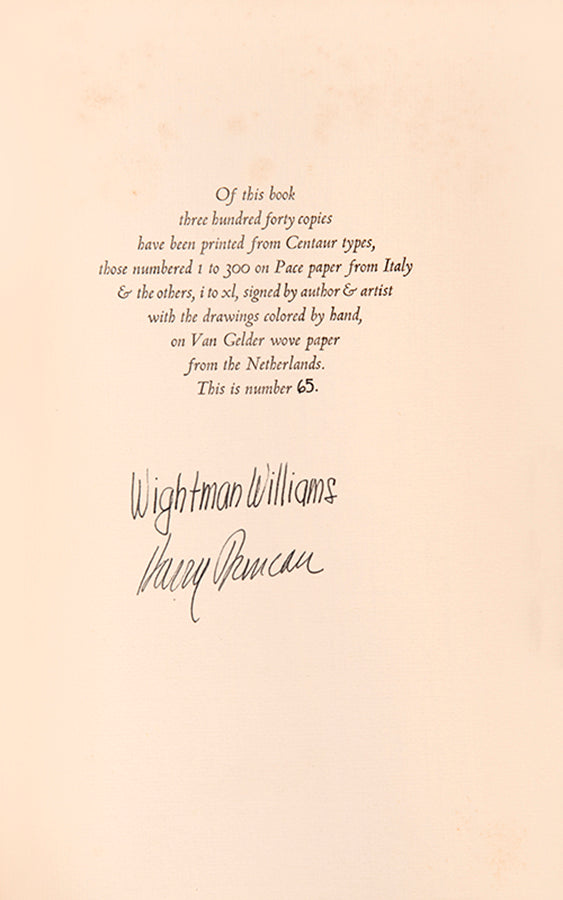 Of this book
three hundred forty copies
have been printed from Centaur types,
those numbered 1 to 300 on Pace paper from Italy
& the others, i to xl, signed by author & artist
with the drawings colored by hand,
on Van Gelder wove paper
from the Netherlands.
This is number 65.
Wightman Williams
Harry Duncan